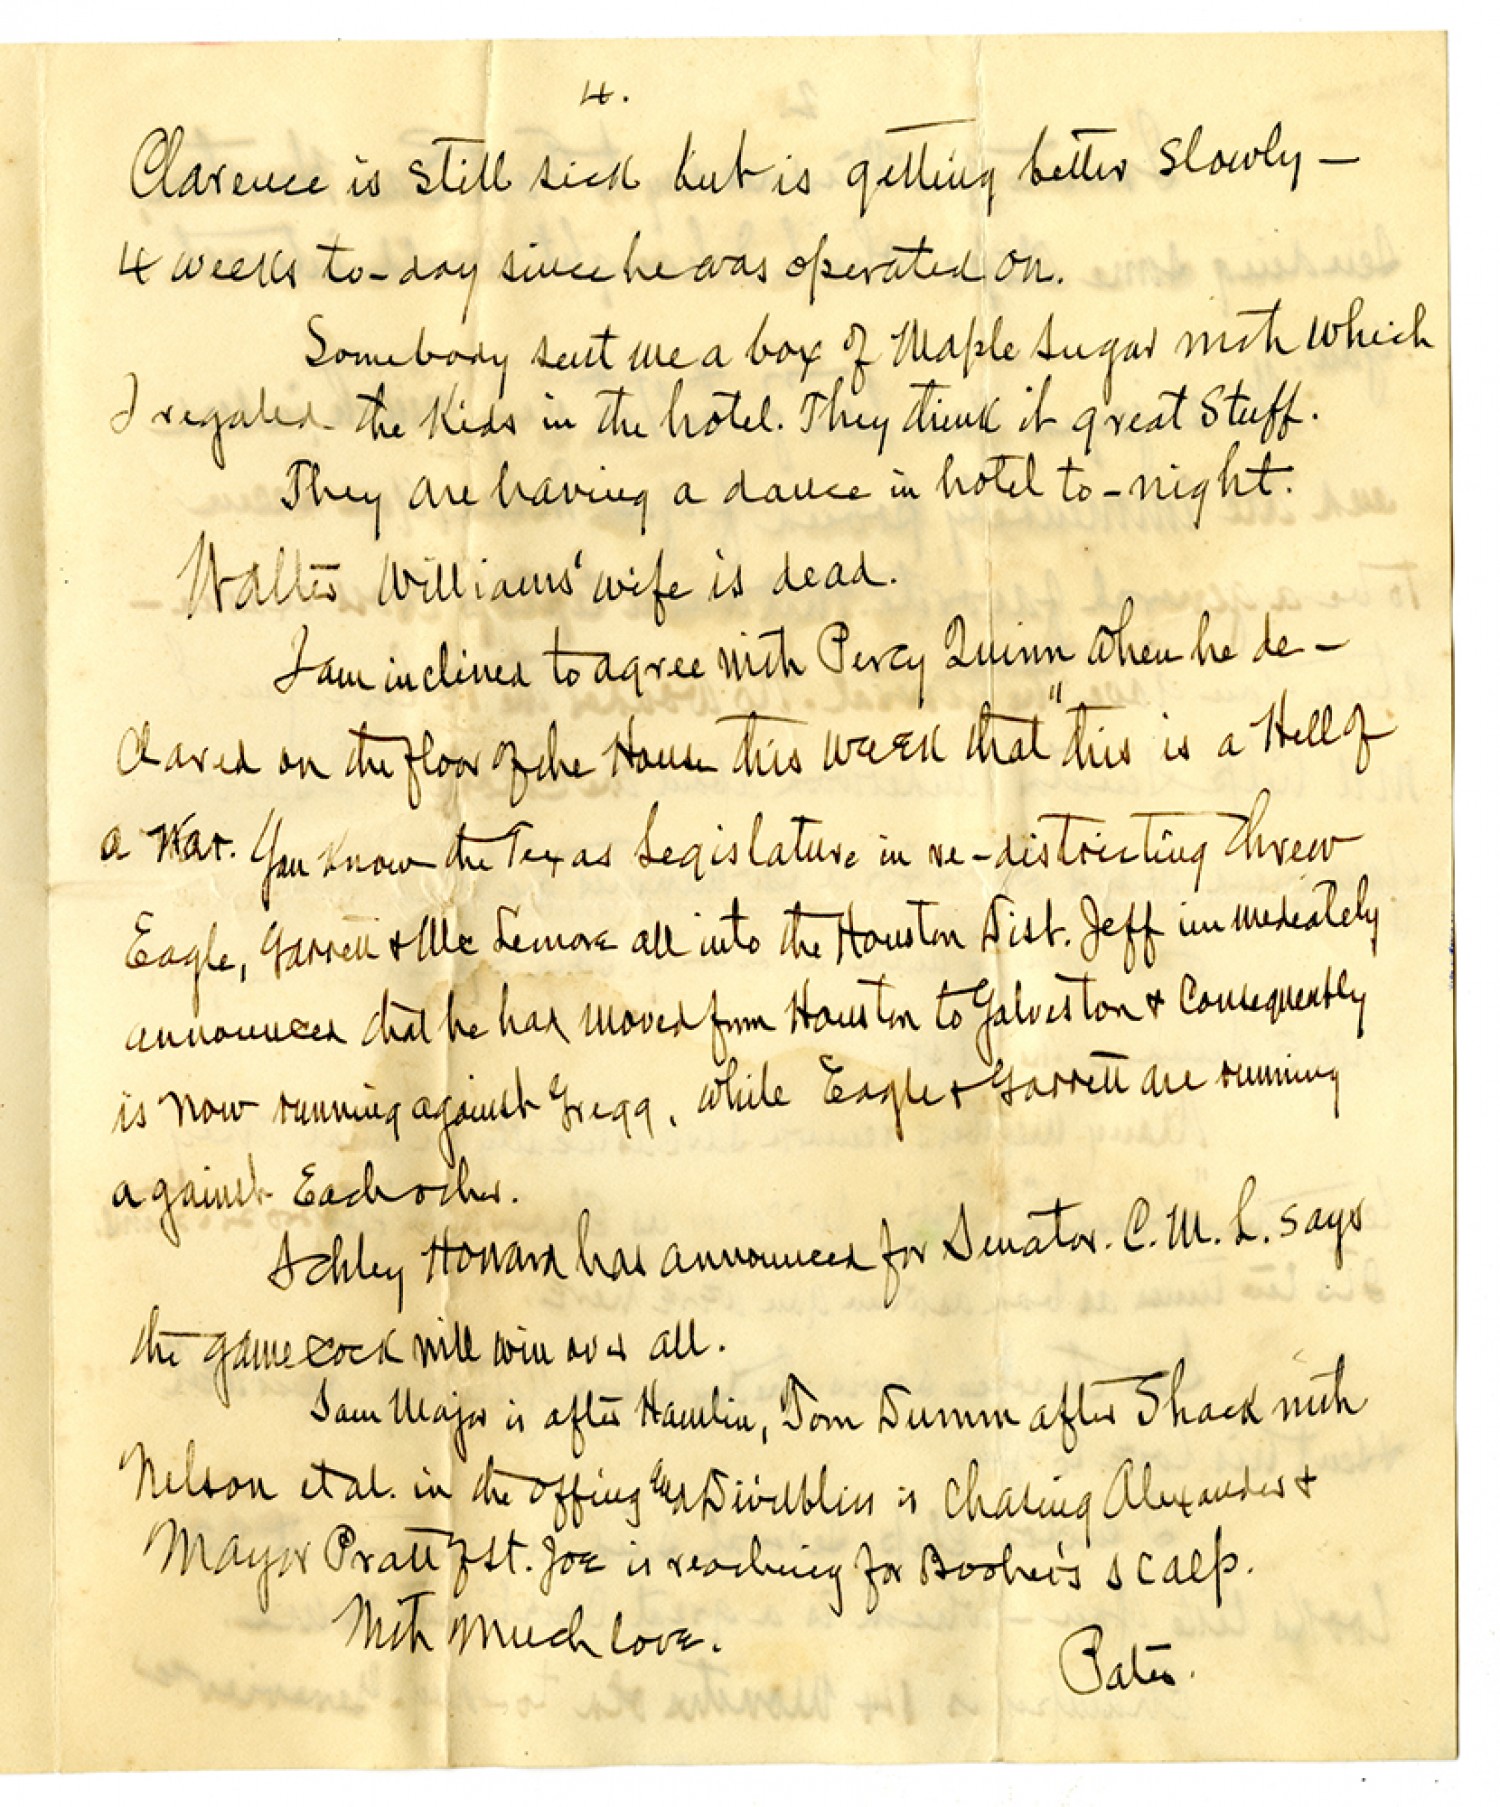 4.
Clarence is still sick but is getting better slowly —
4 weeks to-day since he was operated on.
Somebody sent me a box of Maple Sugar with which
I regaled the Kids in the hotel. They think it great Stuff.
They are having a dance in hotel to-night.
Walter Williams' wife is dead.
I am inclined to agree with Percy Quinn when he de-
clared on the floor of the House this week that "this is a Hell of
a War. You Know the Texas Legislature in re-districting threw
Eagle, Garrett & McLemore all into the Houston Dist. Jeff immediately
announced that he had moved from Houston to Galveston & Consequently
is now running against Gregg, while Eagle & Garrett are running
against Each other.
Schley Howard has announced for Senator. C. M. L. says
the game cock will win over all.
Sam Major is after Hamlin, Tom Dumm after Shack with
Nelson et al. in the offing and is Chasing Alexander &
Mayor Pratt of St. Joe is reaching for Booher's scalp.
With Much love.
Pater.